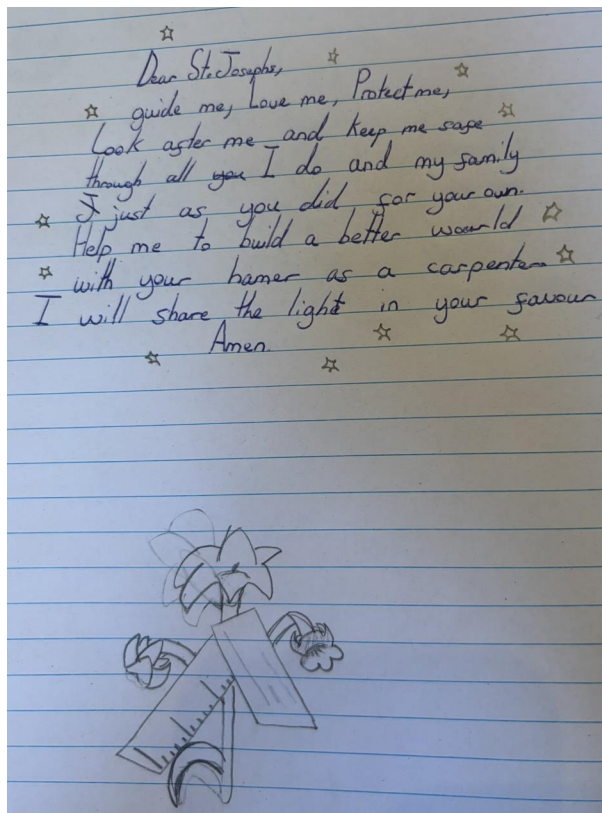 Dear St. Josephs,
guide me, Love me, Protect me,
Look after me and keep me safe
through all you I do and my family
I just as you did for your own.
Help me to build a better woorld
with your hamer as a carpenter
I will share the light in your favour
Amen.